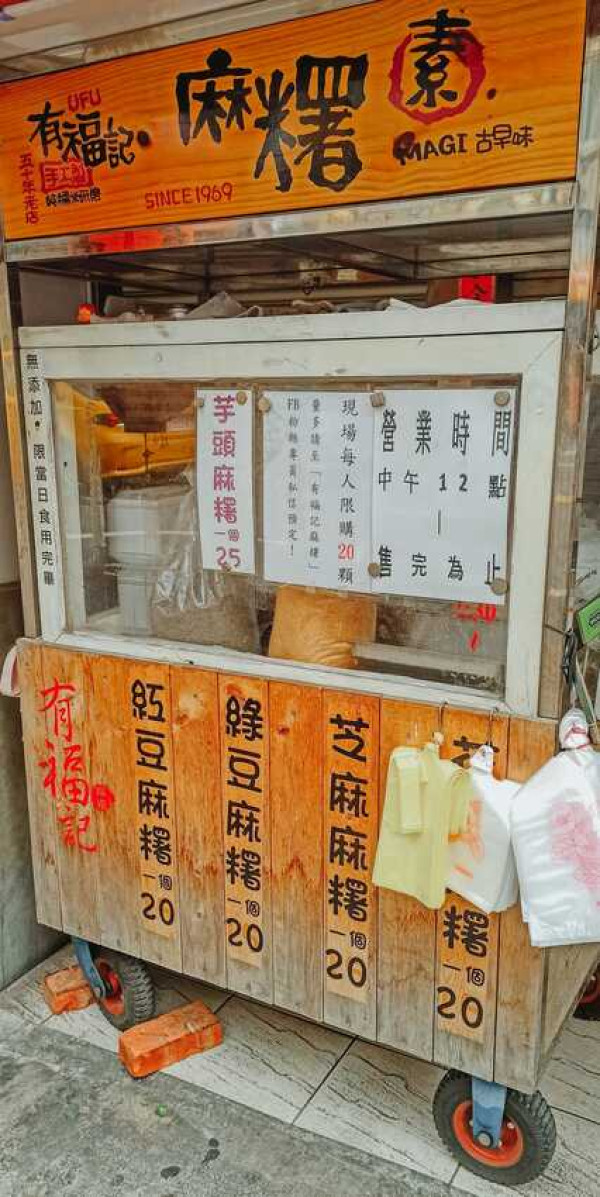 UFU
有福記
五十年老店
手工製
SINCE1969
麻糬
素
MAGI 古早味
無添加，限當日食用完畢
芋頭麻糬一個25
營業時間
中午12點
|
售完為止
現場每人限購20顆
量多請至「有福記麻糬」
FB粉絲專頁私信預定！
有福記
紅豆麻糬一個20
綠豆麻糬一個20
芝麻麻糬一個20
糬一個20